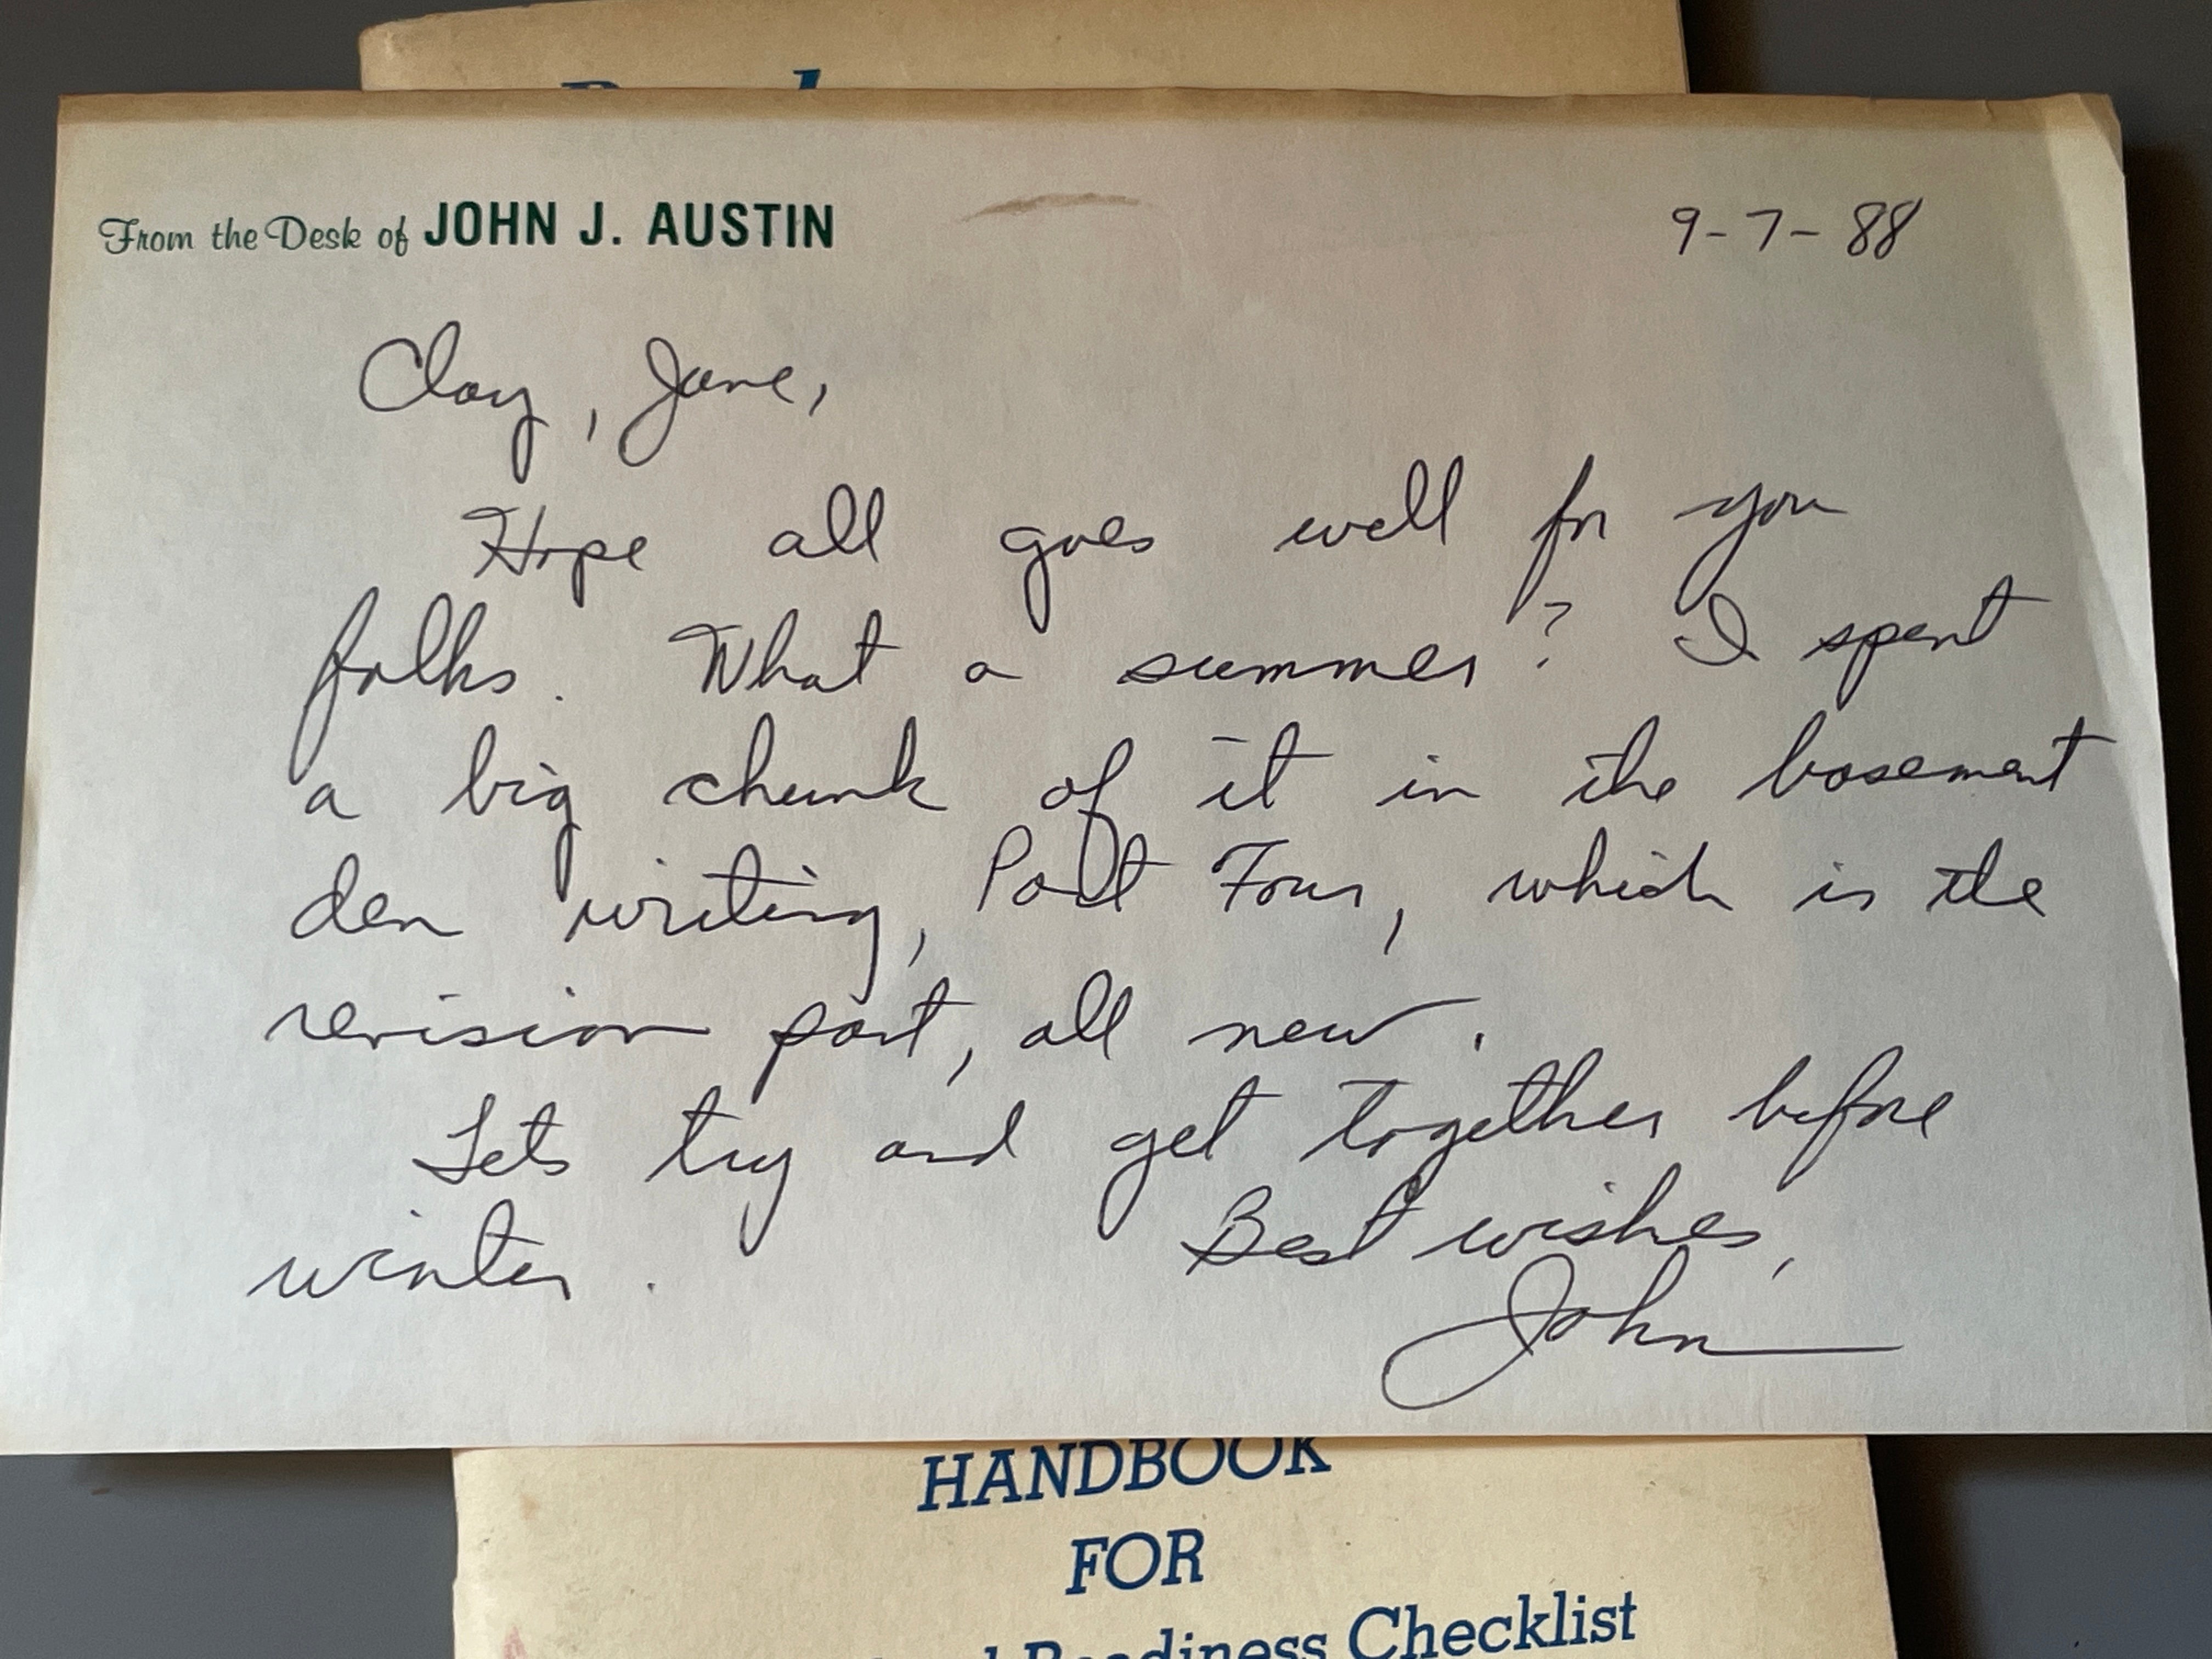 From the Desk of JOHN J. AUSTIN
9-7-88
Clay, Jane,
Hope all goes well for you
folks. What a summer? I spent
a big chunk of it in the basement
den writing, Part Four, which is the
revision part, all new.
Lets try and get together before
winter.
Best wishes,
John
HANDBOOK
FOR
Readiness Checklist